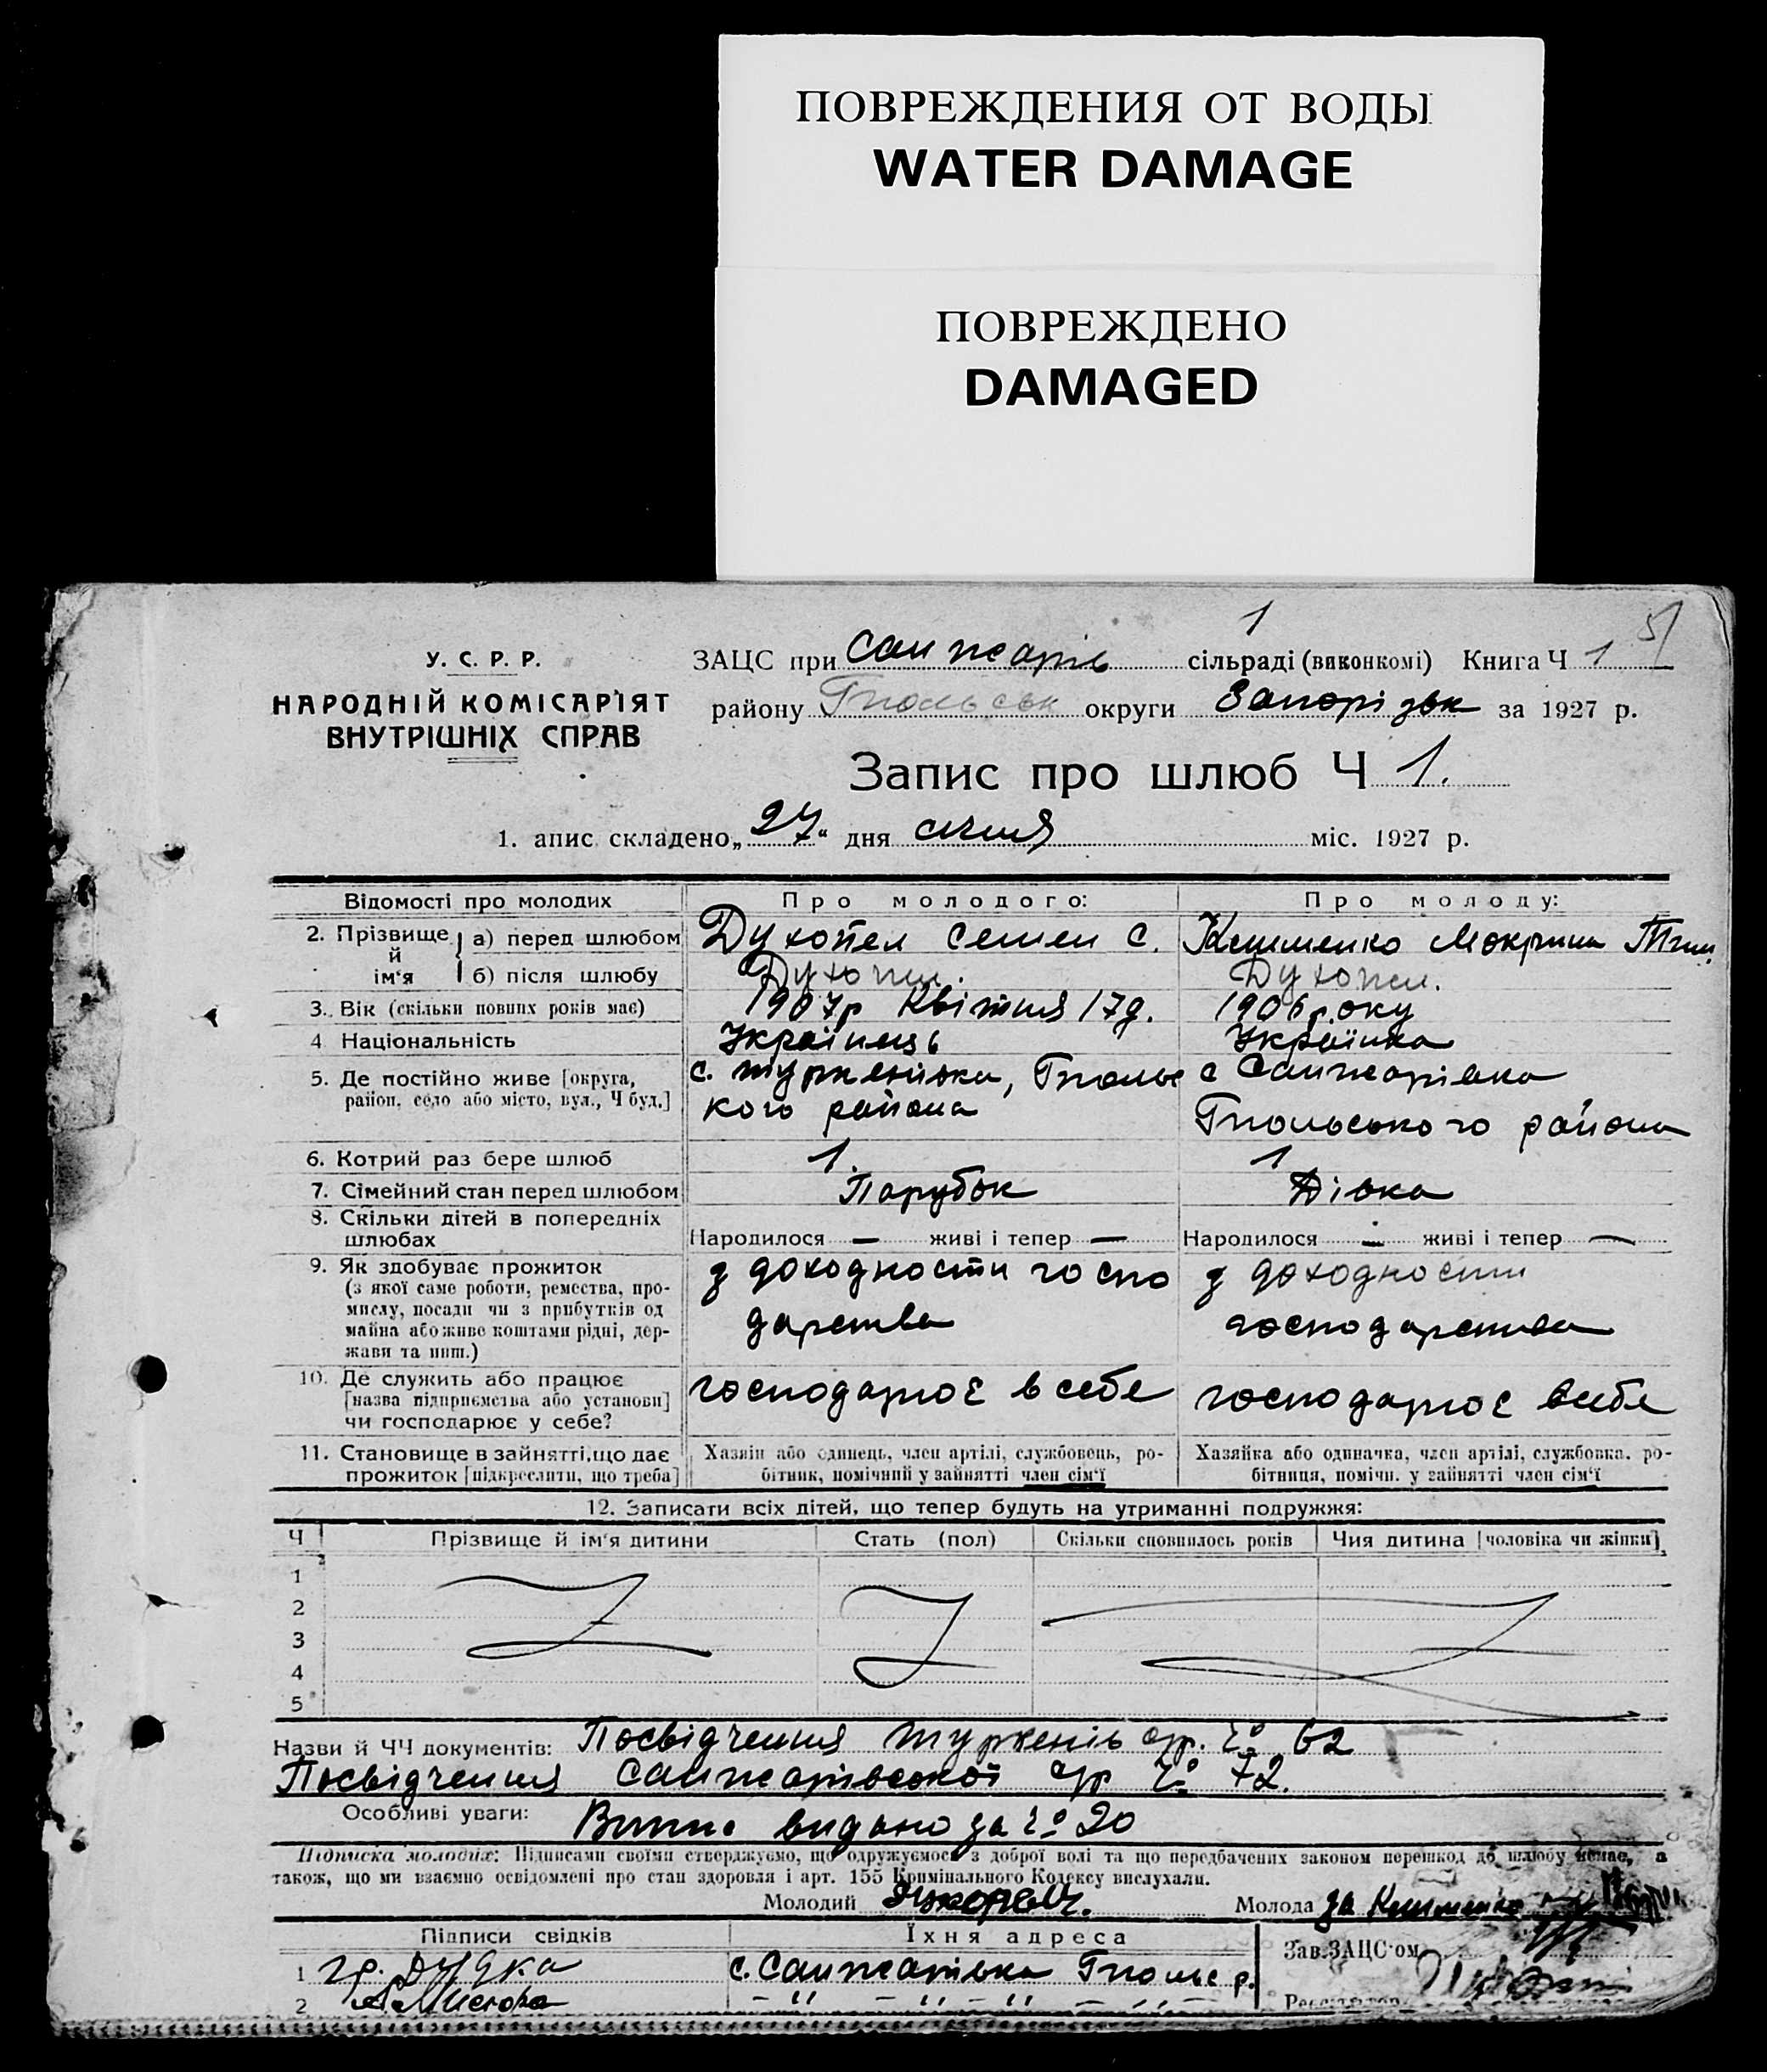 ПОВРЕЖДЕНИЯ ОТ ВОДЫ
WATER DAMAGE
ПОВРЕЖДЕНО
DAMAGED
1
51
У. С. Р. Р.
НАРОДНІЙ КОМІСАРІЯТ
ВНУТРІШНІХ СПРАВ
ЗАЦС при Санжарів сільраді (виконкомі) Книга Ч 1
району Гпольськ округи Запорізьк за 1927 р.
Запис про шлюб Ч 1.
1. апис складено „27“ дня січня міс. 1927 р.
Відомості про молодих Про молодого: Про молоду:
2. Прізвище й ім‘я а) перед шлюбом Духопел Семен С. Клименко Мокрина Тим.
б) після шлюбу Духопел. Духопел.
3. Вік (скільки повних років має) 1907р Квітня 17д. 1906 року
4 Національність Українець Українка
5. Де постійно живе [округа, район, село або місто, вул., Ч буд.] с. Туркенівка, Гпольс кого района с Санжарівка Гпольського района
6. Котрий раз бере шлюб 1. 1
7. Сімейний стан перед шлюбом Парубок Дівка
8. Скільки дітей в попередніх шлюбах Народилося — живі і тепер — Народилося — живі і тепер —
9. Як здобуває прожиток з доходности госпо дарства з доходности господарства
(з якої саме роботи, ремества, про-
мислу, посади чи з прибутків од
майна або живе коштами рідні, дер-
жави та инш.)
10. Де служить або працює [назва підприємства або установи] чи господарює у себе? господарює в себе господарює в себе
11. Становище в зайнятті, що дає прожиток [підкреслити, що треба] Хазяїн або одинець, член артілі, службовець, ро-
бітник, помічний у зайнятті член сім‘ї Хазяйка або одиначка, член артілі, службовка, ро-
бітниця, помічн. у зайнятті член сім‘ї
12. Записати всіх дітей, що тепер будуть на утриманні подружжя:
Ч Прізвище й ім‘я дитини Стать (пол) Скільки сповнилось років Чия дитина [чоловіка чи жінки]
1
2
3
4
5
Назви й ЧЧ документів: Посвідчення Туркенів с/р. Ч° 62
Посвідчення Санжарівської с/р Ч° 72.
Особливі уваги: видано за Ч° 20
Підписка молодих: Підписами своїми стверджуємо, що одружуємось з доброї волі та що передбачених законом перешкод до шлюбу немає, а
також, що ми взаємно освідомлені про стан здоровля і арт. 155 Кримінального Кодексу вислухали.
Молодий Молода за Клименко
Підписи свідків Їхня адреса Зав. ЗАЦС‘ом
1 гр. Дудка с. Санжарівка Гпольс р.
2 — " — " — " — " —